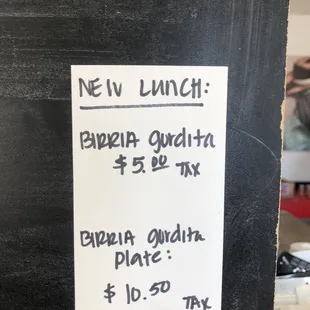 NEW LUNCH:
BIRRIA gurdita
$5.00 TAX
BIRRIA gurdita
plate:
$10.50
TAX